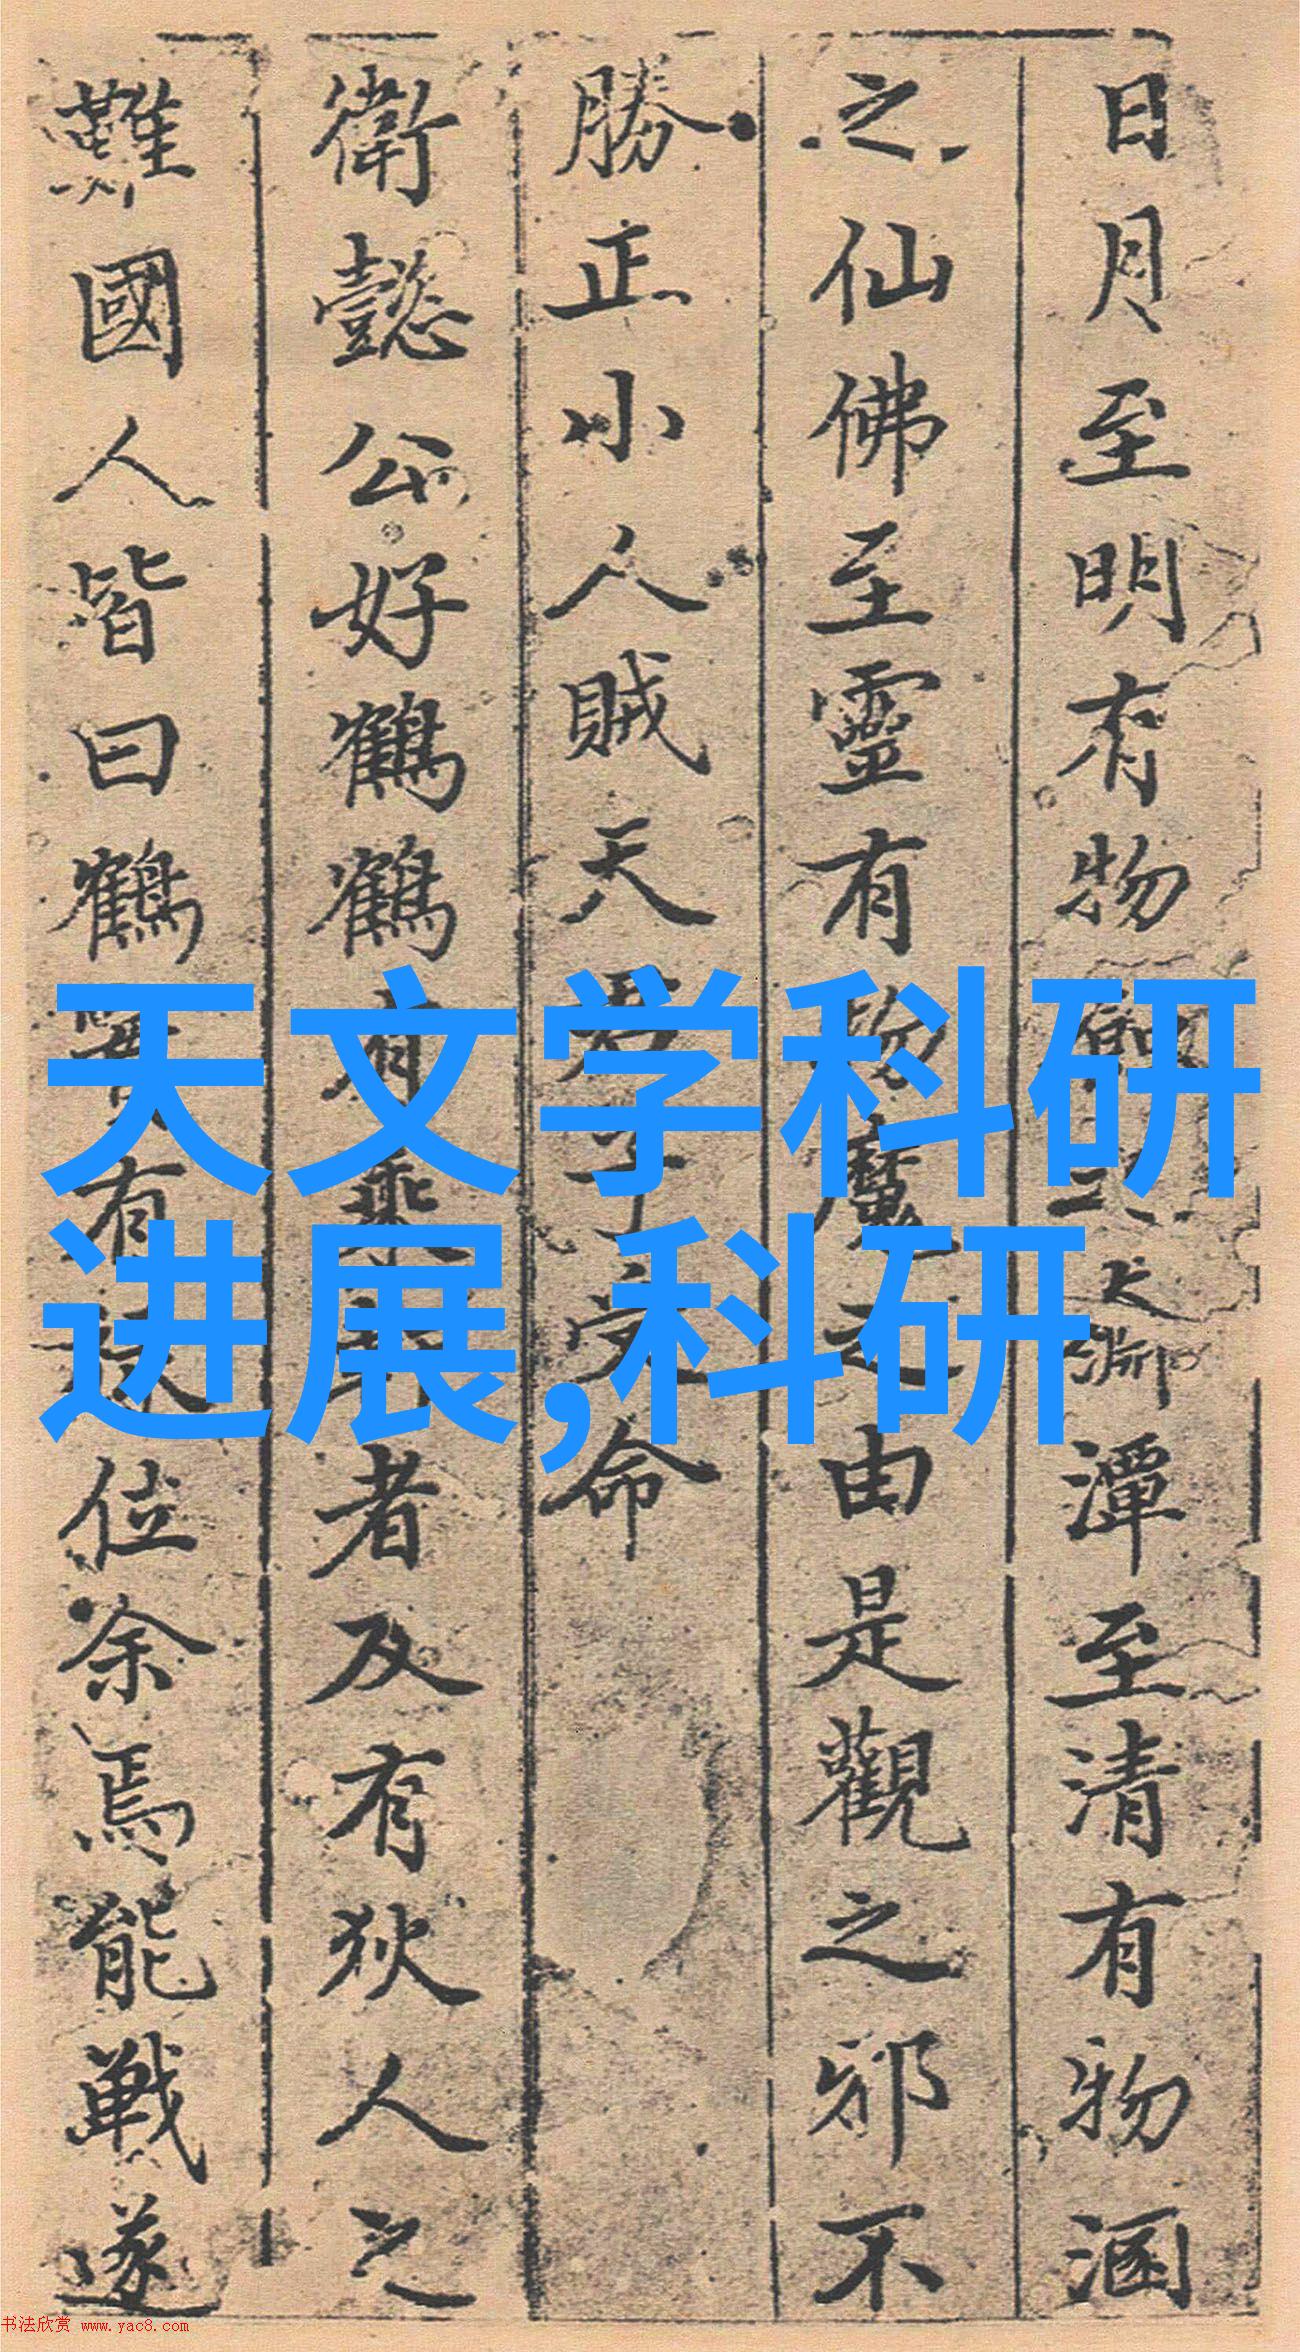 日月至明有物蝕之大淵潭至清有物涵
之仙佛至靈有物魔之由是觀之邪不
勝正小人賊天君子受命
衛懿公好鶴鶴有乘軒者及有狄人之
難國人皆曰鶴實有祿位余焉能戰遂
天文学科研
进展,科研
书法欣赏 www.yac8.com